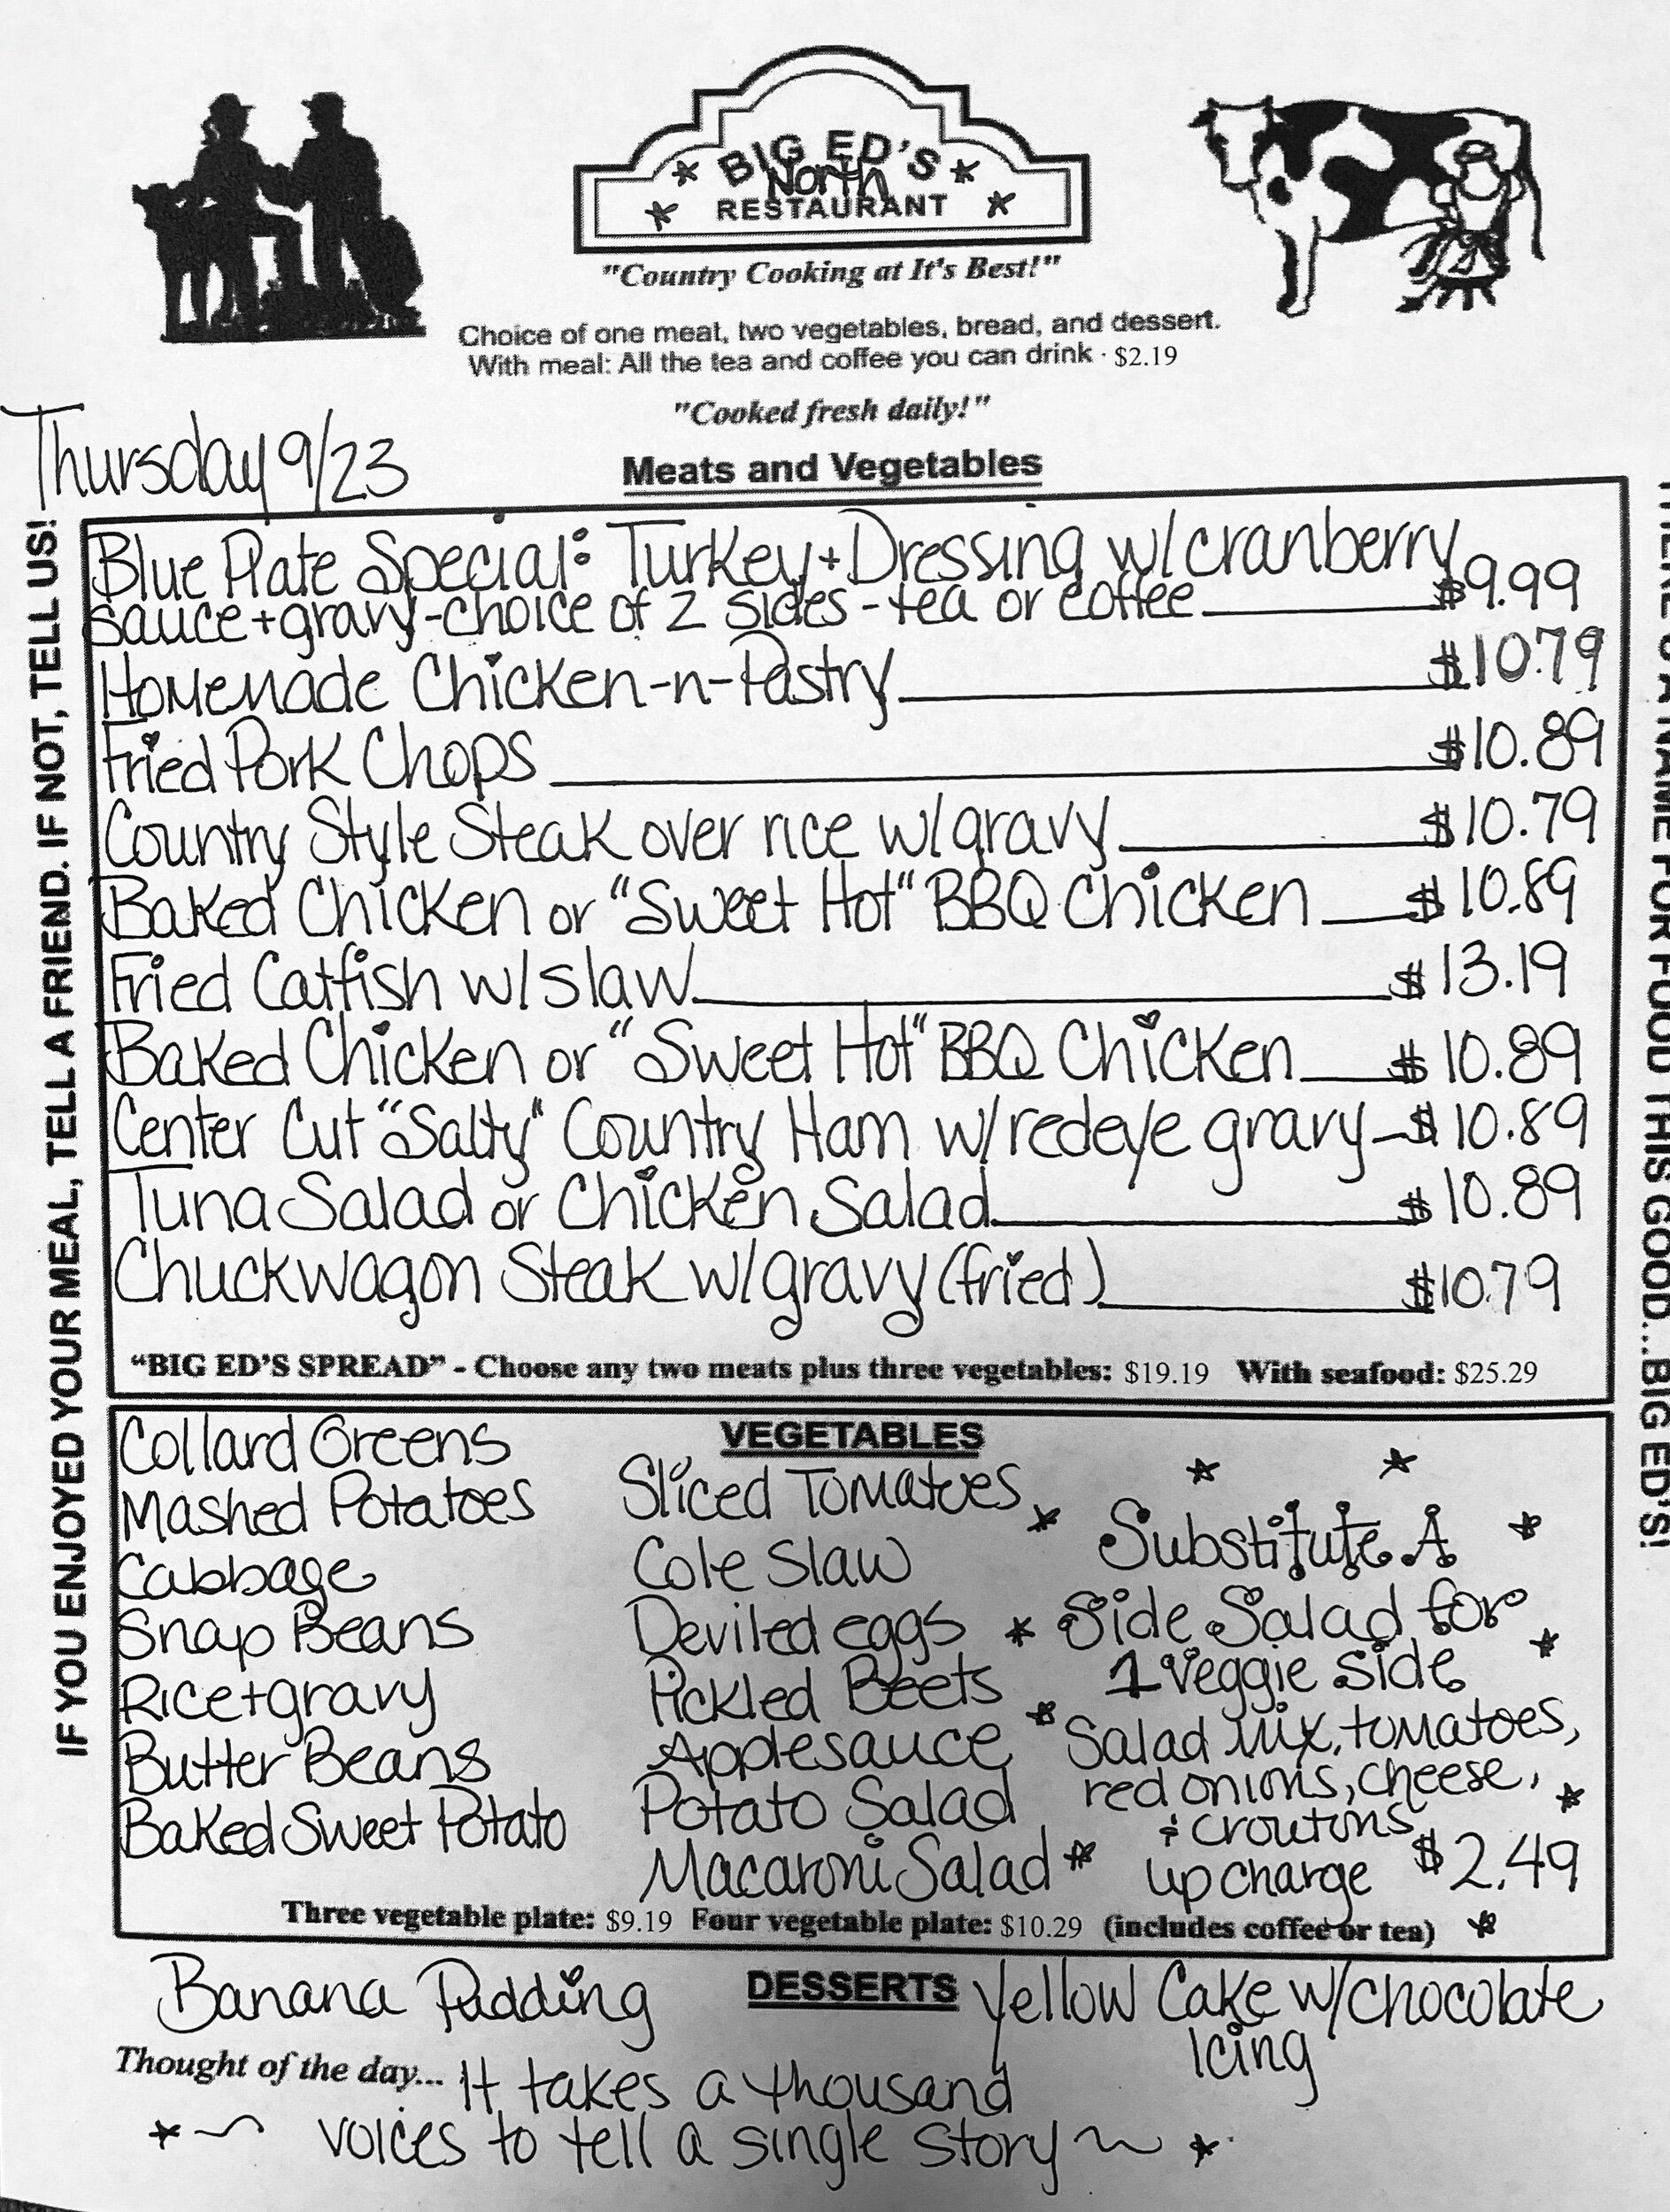 BIG ED'S
North
RESTAURANT
"Country Cooking at It's Best!"
Choice of one meat, two vegetables, bread, and dessert.
With meal: All the tea and coffee you can drink · $2.19
"Cooked fresh daily!"
Thursday 9/23
Meats and Vegetables
Blue Plate Special: Turkey + Dressing w/cranberry
sauce + gravy - choice of 2 sides - tea or coffee $9.99
Homemade Chicken-n-Pastry $10.79
Fried Pork Chops $10.89
Country Style Steak over rice w/gravy $10.79
Baked Chicken or "Sweet Hot" BBQ Chicken $10.89
Fried Catfish w/slaw $13.19
Baked Chicken or "Sweet Hot" BBQ Chicken $10.89
Center Cut "Salty" Country Ham w/redeye gravy - $10.89
Tuna Salad or Chicken Salad $10.89
Chuckwagon Steak w/gravy (fried) $10.79
"BIG ED'S SPREAD" - Choose any two meats plus three vegetables: $19.19 With seafood: $25.29
VEGETABLES
Collard Greens
Mashed Potatoes
Cabbage
Snap Beans
Rice + gravy
Butter Beans
Baked Sweet Potato
Sliced Tomatoes
Cole Slaw
Deviled eggs
Pickled Beets
Applesauce
Potato Salad
Macaroni Salad
Substitute A
Side Salad for
1 Veggie side
Salad mix, tomatoes,
red onions, cheese,
& croutons
up charge $2.49
Three vegetable plate: $9.19 Four vegetable plate: $10.29 (includes coffee or tea)
DESSERTS
Banana Pudding
Yellow Cake w/chocolate
Icing
Thought of the day... It takes a thousand
voices to tell a single story
IF YOU ENJOYED YOUR MEAL, TELL A FRIEND. IF NOT, TELL US!
A NAME FOR FOOD THIS GOOD...BIG ED'S!